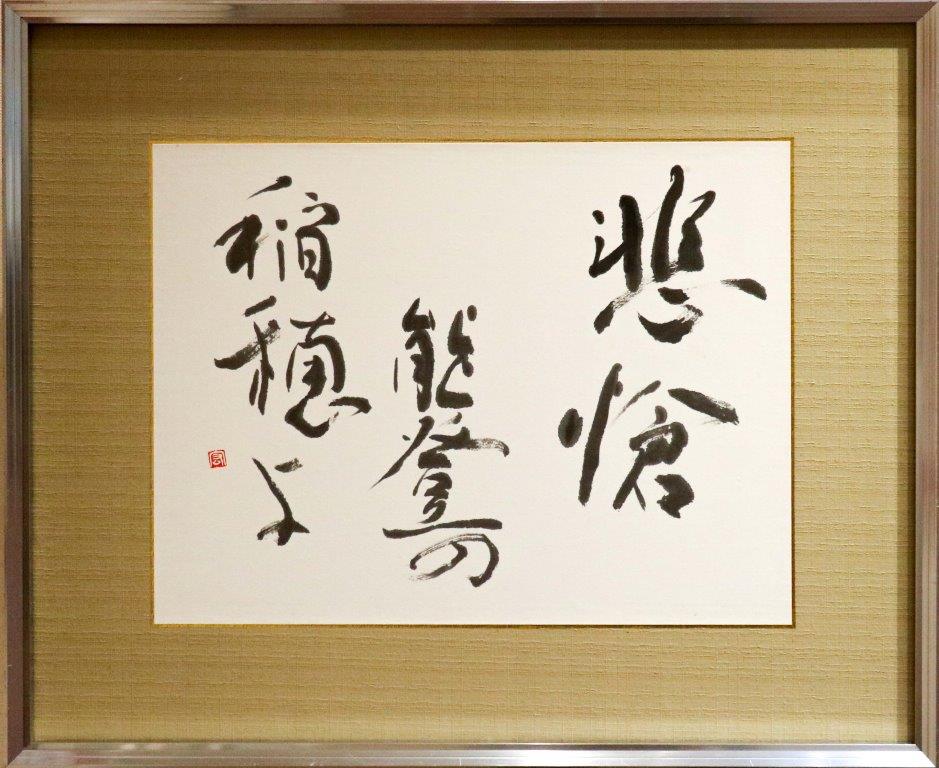 悲愴
能登の
稲穂よ